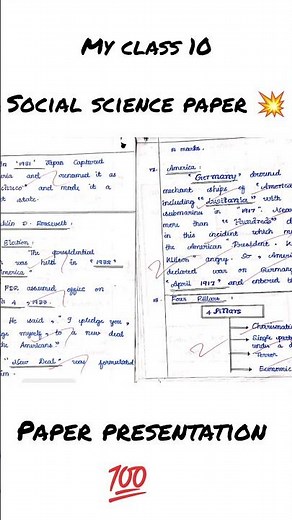 MY CLASS 10
SOCIAL SCIENCE PAPER 💥
In "1931" Japan Captured
and renamed it as
and made it a
state.
D. Roosevelt
Election:
The presidential
was held in
America".
FDR assumed office on
4
He said, "I pledge you,
myself, to a new deal
Americans"
"New Deal" was formulated
8 marks.
America:
"Germany" drowned
merchant ships of "America
including "Lusitania" with
submarines in "1917".
than "Hundreds"
in this incident which
the American President.
Wilson" angry. So "Am
declared war on German
"April 1917" and entered th
Four Pillars:
4 Pillars
Charismatic
Single party
under a d
Terror
Economic
PAPER PRESENTATION
💯